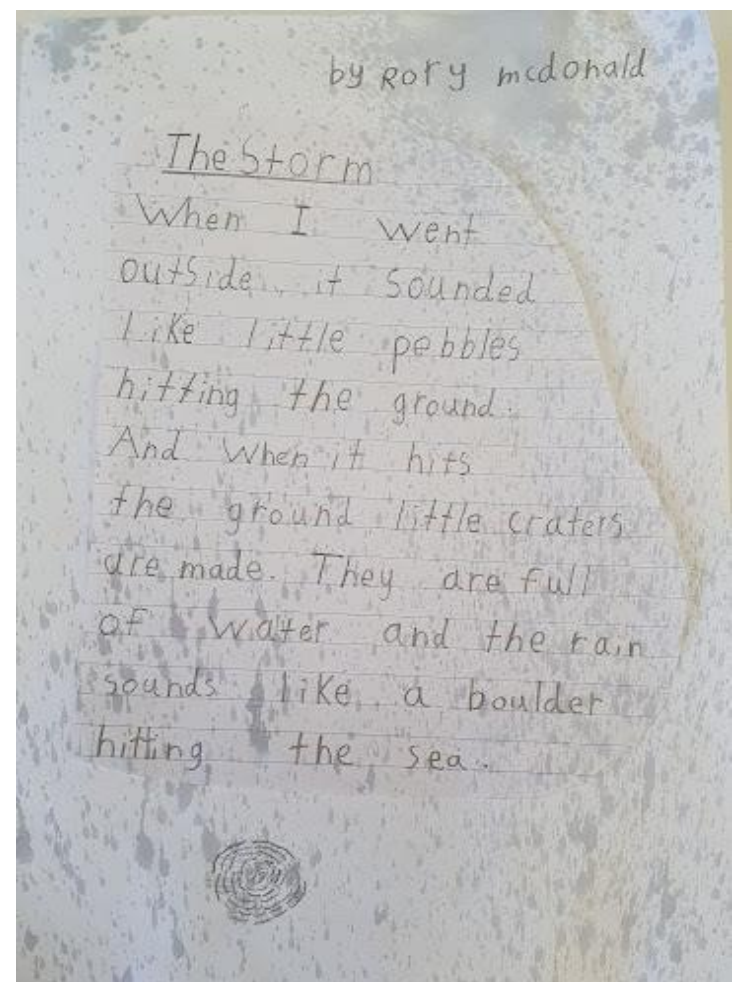 by Rory mcdonald
The Storm
When I went
outside it sounded
like little pebbles
hitting the ground.
And when it hits
the ground little craters
are made. They are full
of water and the rain
sounds like a boulder
hitting the sea.